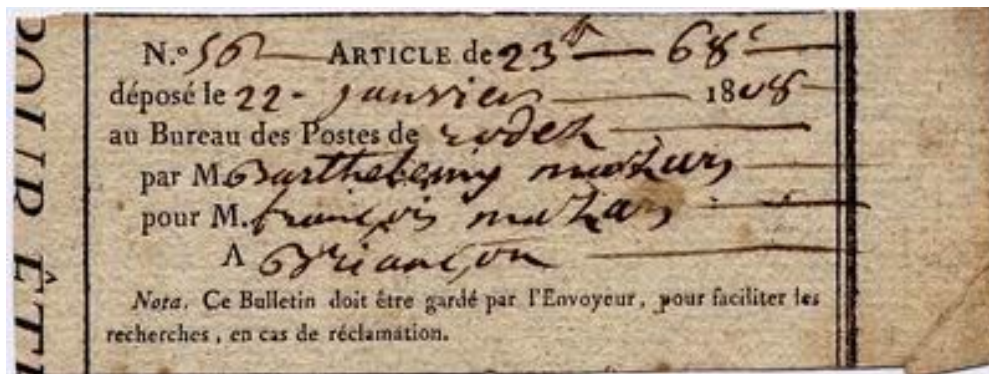 POUR ÊTR
N.º 56 ARTICLE de 23 ff 68 c
déposé le 22 - janvier 1808
au Bureau des Postes de rodez
par M. Barthelemy mazars
pour M. françois mazars
A Briançon
Nota. Ce Bulletin doit être gardé par l'Envoyeur, pour faciliter les
recherches, en cas de réclamation.